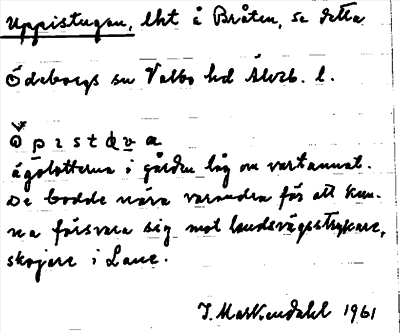 Uppistugan, lht å Bråten, se detta
Ödeborgs sn Valbo hd Älvsb. l.
ägolotterna i gården låg om vartannat.
De bodde nära varandra för att kun-
na försvara sig mot landsvägsstrykare,
skojare i Lane.
J. Markendahl 1961